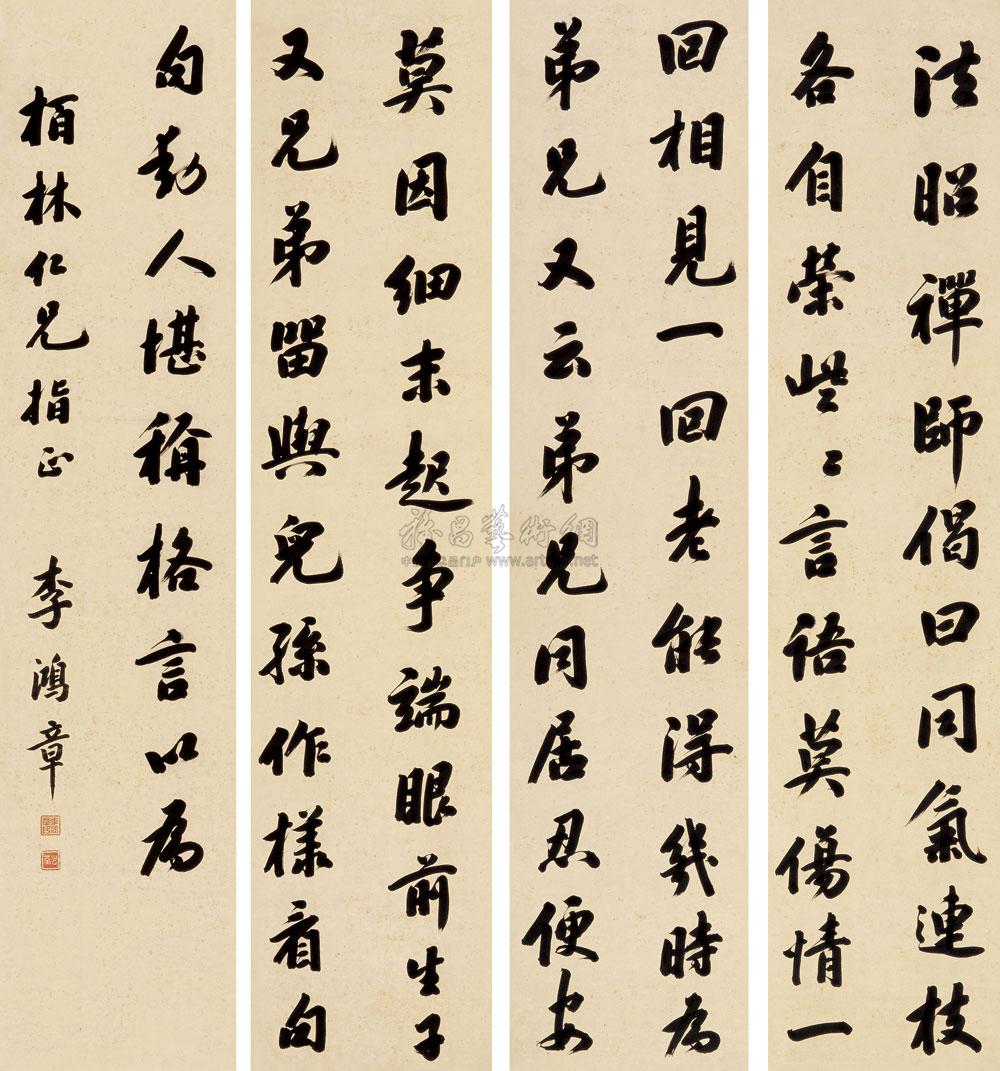 法昭禪師偈曰同氣連枝
各自榮些些言語莫傷情一
回相見一回老能得幾時為
弟兄又云弟兄同居忍便安
莫因細末起爭端眼前生子
又兄弟留與兒孫作樣看句
句動人堪稱格言以為
栢林仁兄指正 李鴻章
藝術網
www.art
.net